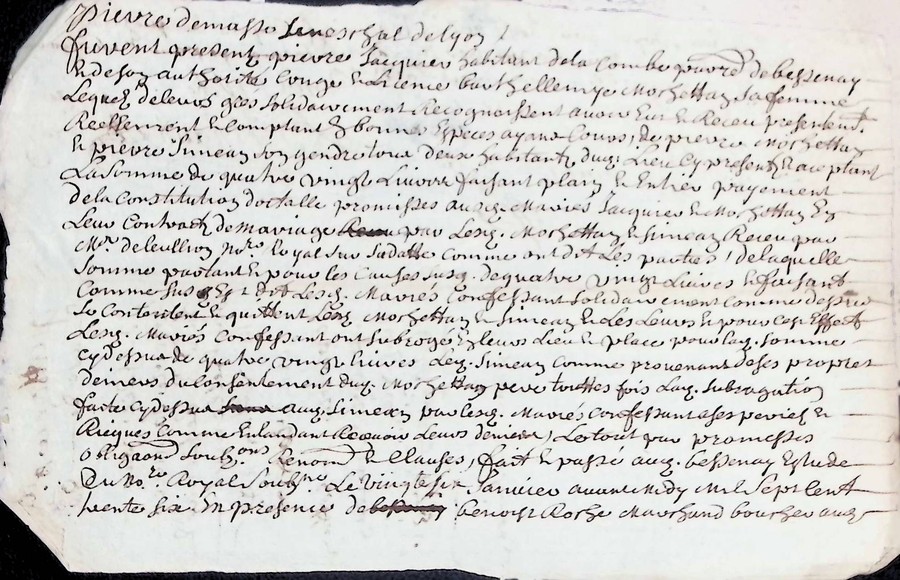 Pierre demasso Seneschal de Lyon
furent present pierre Jacquier habitant de la Combe parre de bessenay
& de son authorité Congé & Licence barthellemye Mochettaz sa femme
Lequel de leurs grez solidairement Recognoissent avoir Eut & Receu presentemt.
Reellement & Comptant En bonnes Espèces ayans Cours, de pierre Mochettaz
& pierre Simean son gendre tous deux habitants dud. Lieu Cy present & acceptant
La somme de quatre vingt Livres faisant plain & Entier payement
de la Constitution doctalle promisses ausd. Mariés Jacquier & Mochettaz En
Leur Contract de mariage par Lesd. Mochettaz & Simean Receu par
Mre deleullion Nore Royal sur sa datte Comme ont dit Les parties, de laquelle
somme partant & pour les Causes susd. de quatre vingt Livres & faisant
Comme sus Est dit Lesd. Mariés Confessant solidairement Comme dessus
se Contentent & quittent Lesd. Mochettaz & Simean & Les Leurs & pour cest Effect
Lesd. Mariés Confessant ont subrogé En leurs Lieu & place pour lad. somme
cy dessus de quatre vingt Livres Led. Simean Comme provenant de ses propres
deniers du Consentement dud. Mochettaz pere touttes fois Lad. subrogation
faite cy dessus aud. Simean par lesd. Mariés Confessant a ses perils &
Risques Comme Entandant Recevoir Leurs deniers, Le tout par promesses
obligaons soubons Renom & Clauses, fait & passé aud. bessenay Estude
Du Nore Royal Soubne. Le vingt six Janvier avant Midy Mil Sept Cent
trente six. En presence de benoist Roche Marchand boucher aud.